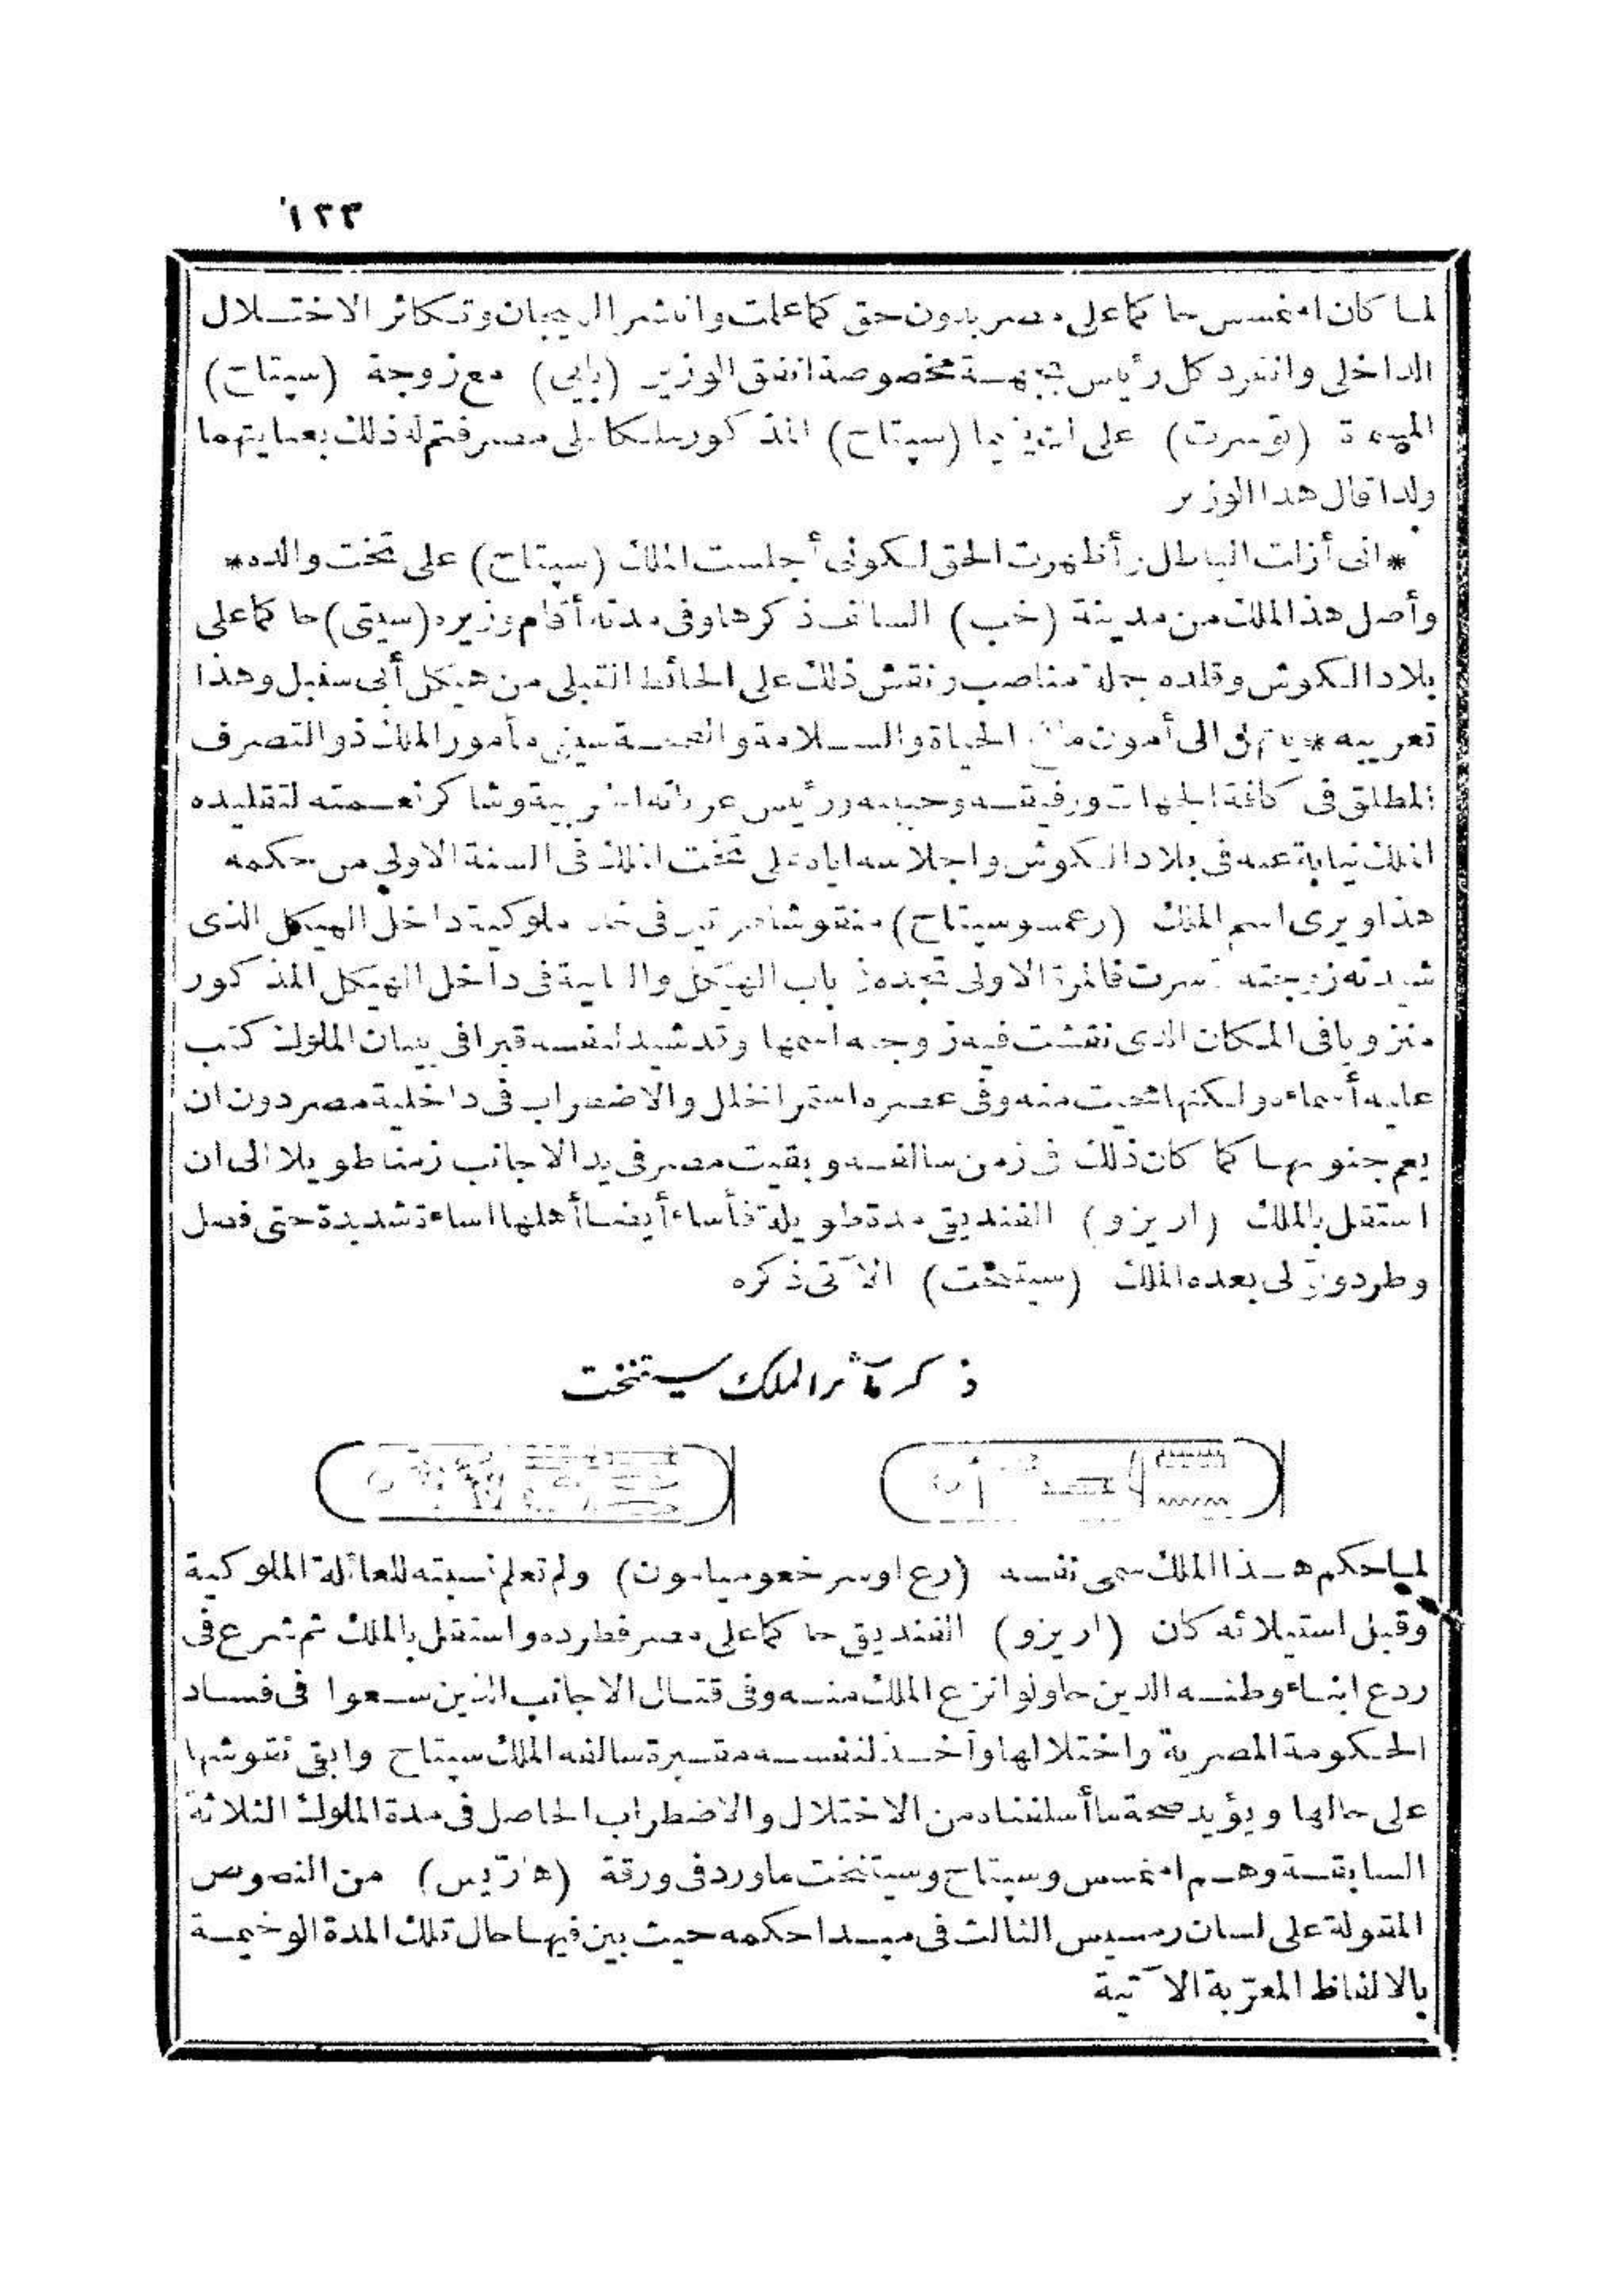 ١٢٣
لما كان امنمسس حاكما على مصر بدون حق كما علمت وانتشر الهيجان وتكاثر الاختلال
الداخلى وانفرد كل رئيس بجهة مخصوصة اتفق الوزير (بايى) مع زوجة (سپتاح)
(توسرت) على ان (سپتاح) المذكور ملكا على مصر فتم له ذلك بعنايتهما
ولذا قال هذا الوزير
* انى أزلت الباطل وأظهرت الحق لكونى أجلست الملك (سپتاح) على تخت والده *
وأصل هذا الملك من مدينة (خب) السالف ذكرها وفى مدته أقام وزيره (سيتى) حاكما على
بلاد الكوش وقلده جملة مناصب ونقش ذلك على الحائط القبلى من هيكل أبى سنبل وهذا
تعريبه * الى أمون الحياة والسلامة والصحة مأمور الملك ذو التصرف
المطلق فى كافة الجهات ورفيقه وحبيبه ورئيس عرباته الحربية وشاكر نعمته لتقليده
الملك نيابة عنه فى بلاد الكوش واجلاسه اياه على تخت الملك فى السنة الاولى من حكمه
هذا ويرى اسم الملك (رعمسو سپتاح) منقوشا مرتين فى ملوكية داخل الهيكل الذى
شيدته زوجته تسرت فالمرة الاولى تجده فى باب الهيكل والثانية فى داخل الهيكل المذكور
منزويا فى المكان الذى نقشت فيه زوجته اسمها وقد شيد لنفسه قبرا فى بيبان الملوك كتب
عليه أسماءه ولكنها محيت منه وفى عصره استمر الخلل والاضطراب فى داخلية مصر دون ان
يعم جنوبها كما كان ذلك فى زمن سالفه وبقيت مصر فى يد الاجانب زمنا طويلا الى ان
استقل بالملك (اريزو) الفنديقى مدة طويلة فأساء أيضا أهلها اساءة شديدة حتى فصل
وطرد وتولى بعده الملك (سيتنخت) الآتى ذكره
ذكر مآثر الملك سيتنخت
لما حكم هذا الملك سمى نفسه (رع اوسر خعو ميامون) ولم تعلم نسبته للعائلة الملوكية
وقبل استيلائه كان (اريزو) الفنديقى حاكما على مصر فطرده واستقل بالملك ثم شرع فى
ردع ابناء وطنه الذين حاولوا نزع الملك منه وفى قتال الاجانب الذين سعوا فى فساد
الحكومة المصرية واختلالها وأخذ لنفسه مقبرة سالفه الملك سپتاح وابقى نقوشها
على حالها ويؤيد صحة ما أسلفناه من الاختلال والاضطراب الحاصل فى مدة الملوك الثلاثة
السابقة وهم امنمسس وسپتاح وسيتنخت ما ورد فى ورقة (هرّيس) من النصوص
المقولة على لسان رمسيس الثالث فى مبدا حكمه حيث بين فيها حال تلك المدة الوخيمة
بالالفاظ المعرّبة الآتية